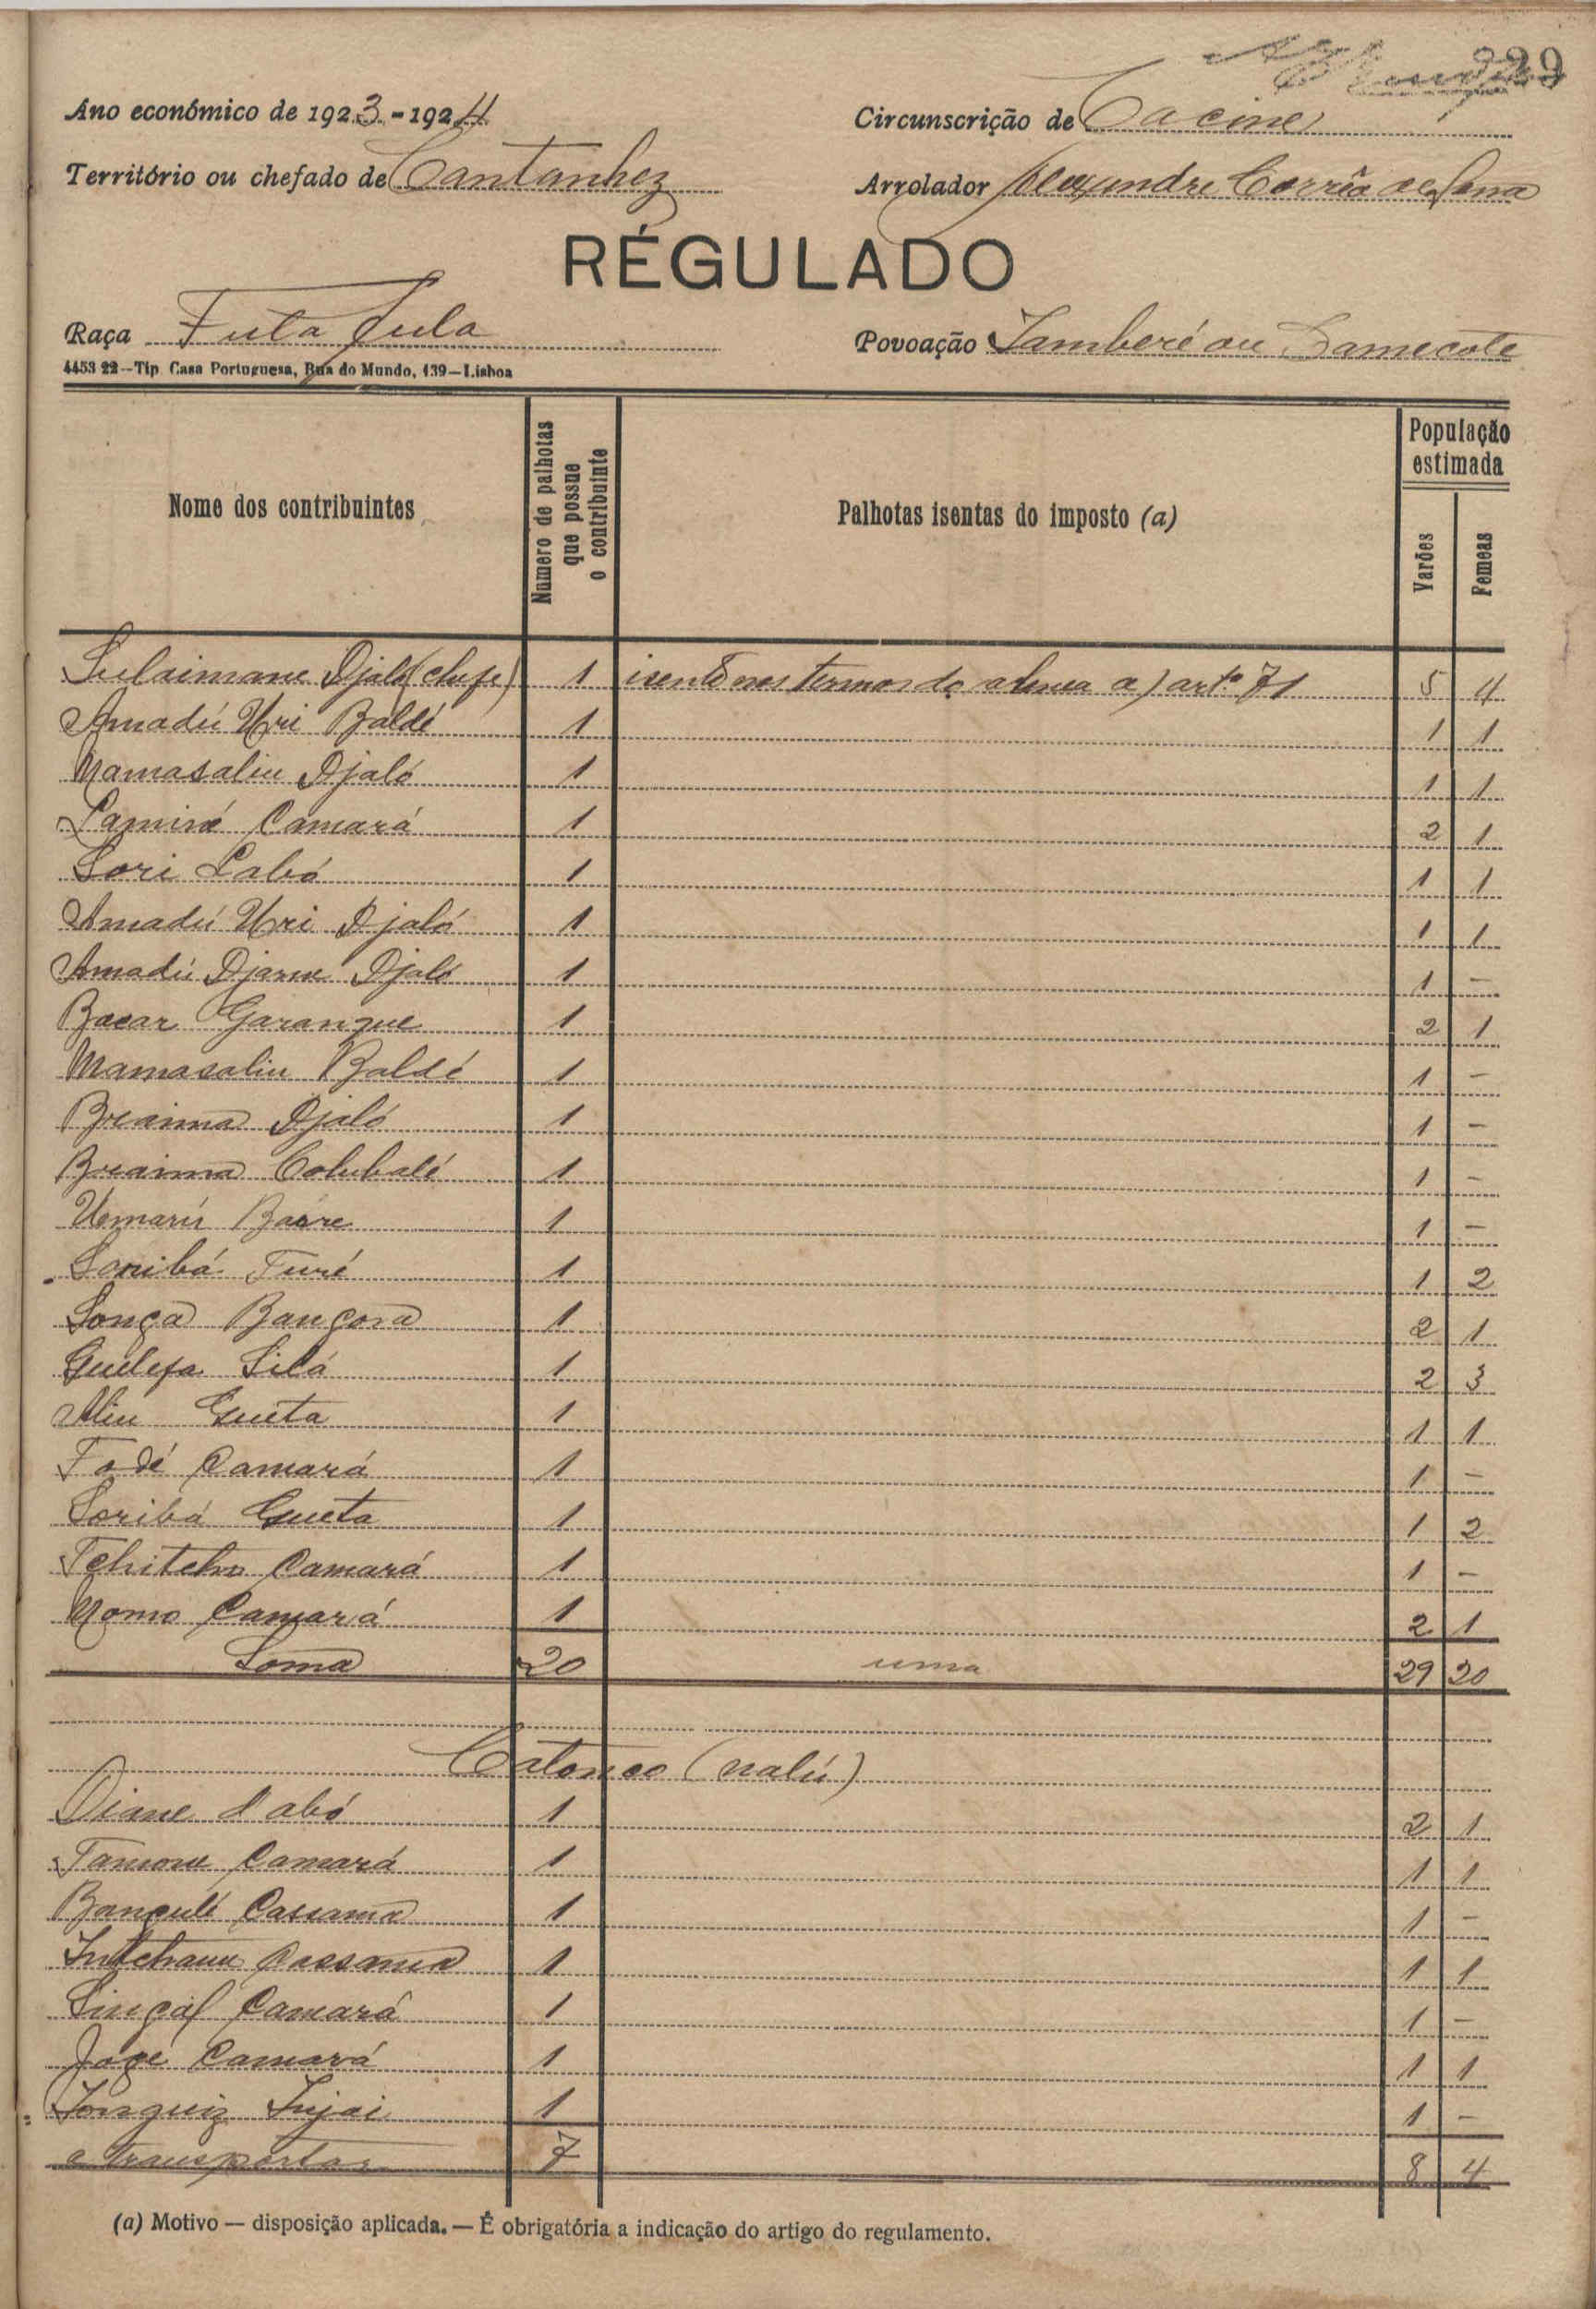 229
Ano económico de 1923-1924
Circunscrição de Cacine
Território ou chefado de Cantanhez
Arrolador Alexandre Corrêa de Sena
RÉGULADO
Raça Futa Fula
Povoação Jamberé ou Damecote
4453 22--Tip. Casa Portuguesa, Rua do Mundo, 139--Lisboa
Nome dos contribuintes
Número de palhotas que possue o contribuinte
Palhotas isentas do imposto (a)
População estimada
Varões
Femeas
Sulaimane Djaló (chefe) 1 isento nos termos da alinea a) artº 71 5 4
Amadú Uri Baldé 1 1 1
Mamasaliu Djaló 1 1 1
Laminé Camará 1 2 1
Sori Labó 1 1 1
Amadú Uri Djaló 1 1 1
Amadú Djarue Djaló 1 1 -
Bacar Garangue 1 2 1
Mamasaliu Baldé 1 1 -
Breaima Djaló 1 1 -
Breaima Colubalé 1 1 -
Umarú Baére 1 1 -
Soribá Turé 1 1 2
Songa Bangora 1 2 1
Guelefa Silá 1 2 3
Aliu Gueta 1 1 1
Fodé Camará 1 1 -
Soribá Gueta 1 1 2
Tchitcho Camará 1 1 -
Momo Camará 1 2 1
Soma 20 uma 29 20
Catonco (nalú)
Diane Dabó 1 2 1
Tamone Camará 1 1 1
Bangulé Cassama 1 1 -
Intchaun Cassama 1 1 1
Singáf Camará 1 1 -
Jogé Camará 1 1 1
Injai 1 1 -
a transportar 7 8 4
(a) Motivo — disposição aplicada. — É obrigatória a indicação do artigo do regulamento.